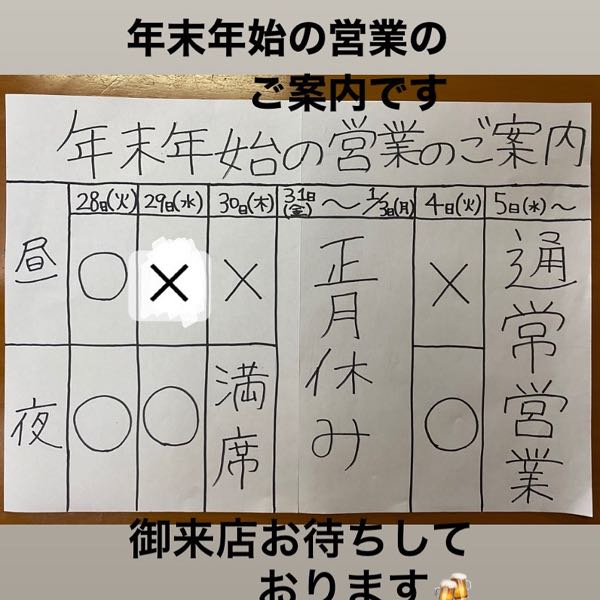 年末年始の営業の
ご案内です
年末年始の営業のご案内
28日(火) 29日(水) 30日(木) 31日(金)～1/3日(月) 4日(火) 5日(水)～
昼 ○ × × 正月休み × 通常営業
夜 ○ ○ 満席 ○
御来店お待ちして
おります🍻